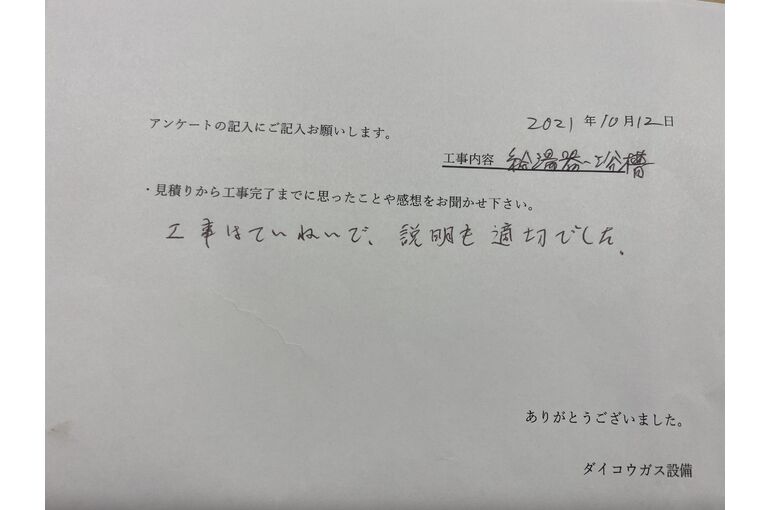 2021年10月12日
アンケートの記入にご記入お願いします。
工事内容 給湯器〜浴槽
・見積りから工事完了までに思ったことや感想をお聞かせ下さい。
工事はていねいで、説明も適切でした。
ありがとうございました。
ダイコウガス設備